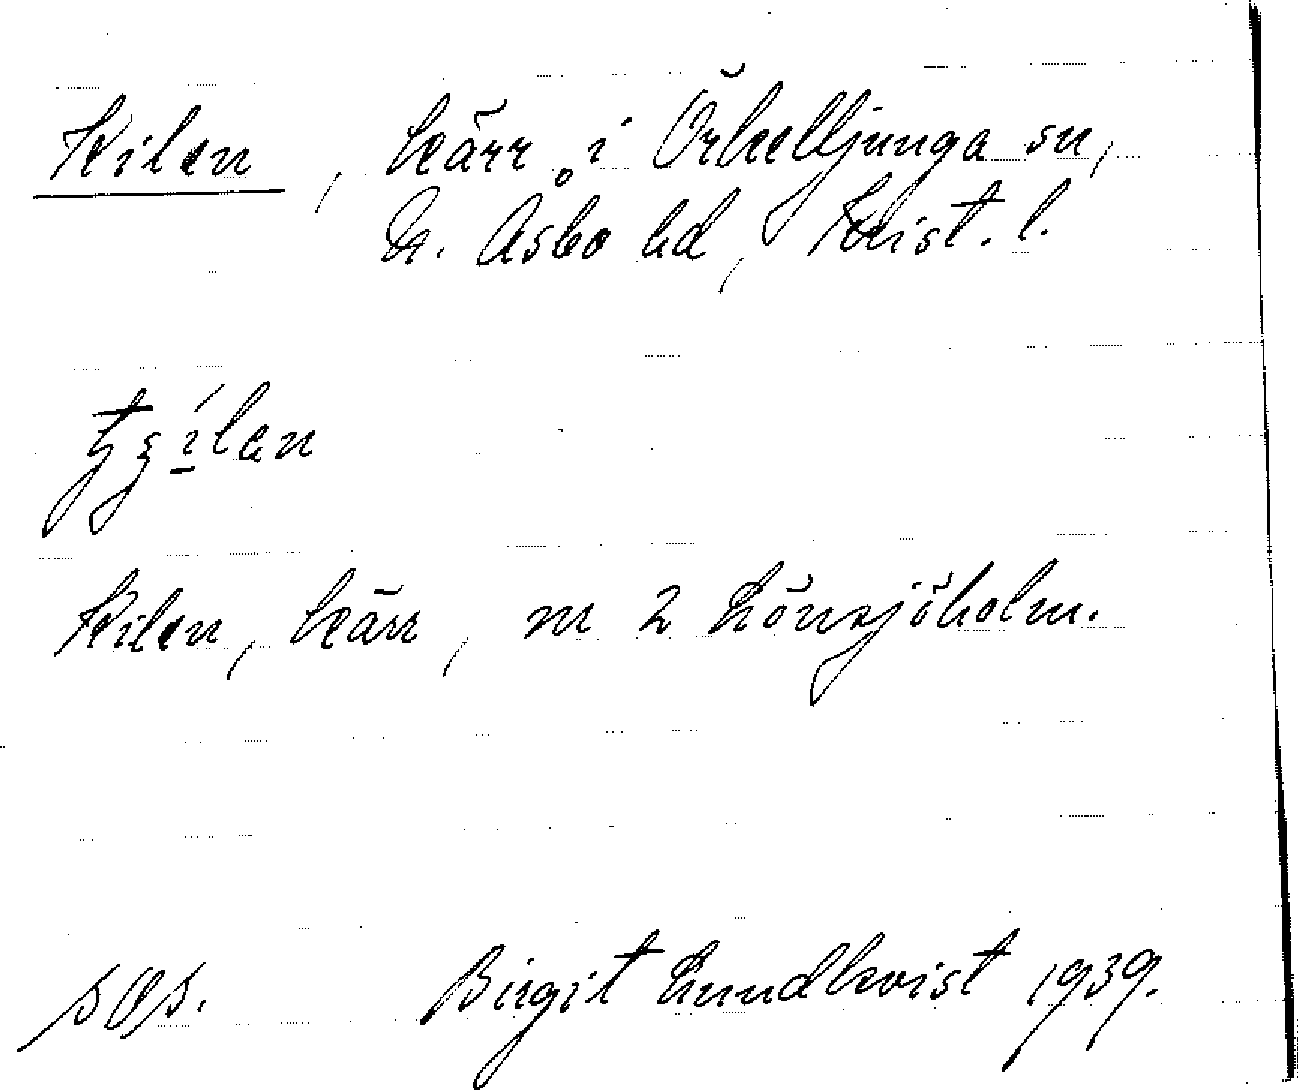 Kilen, kärr i Örkelljunga sn,
N. Åsbo hd, Krist. l.
Kilen, kärr, m 2 Lönsjöholm.
Birgit Lundkvist 1939.